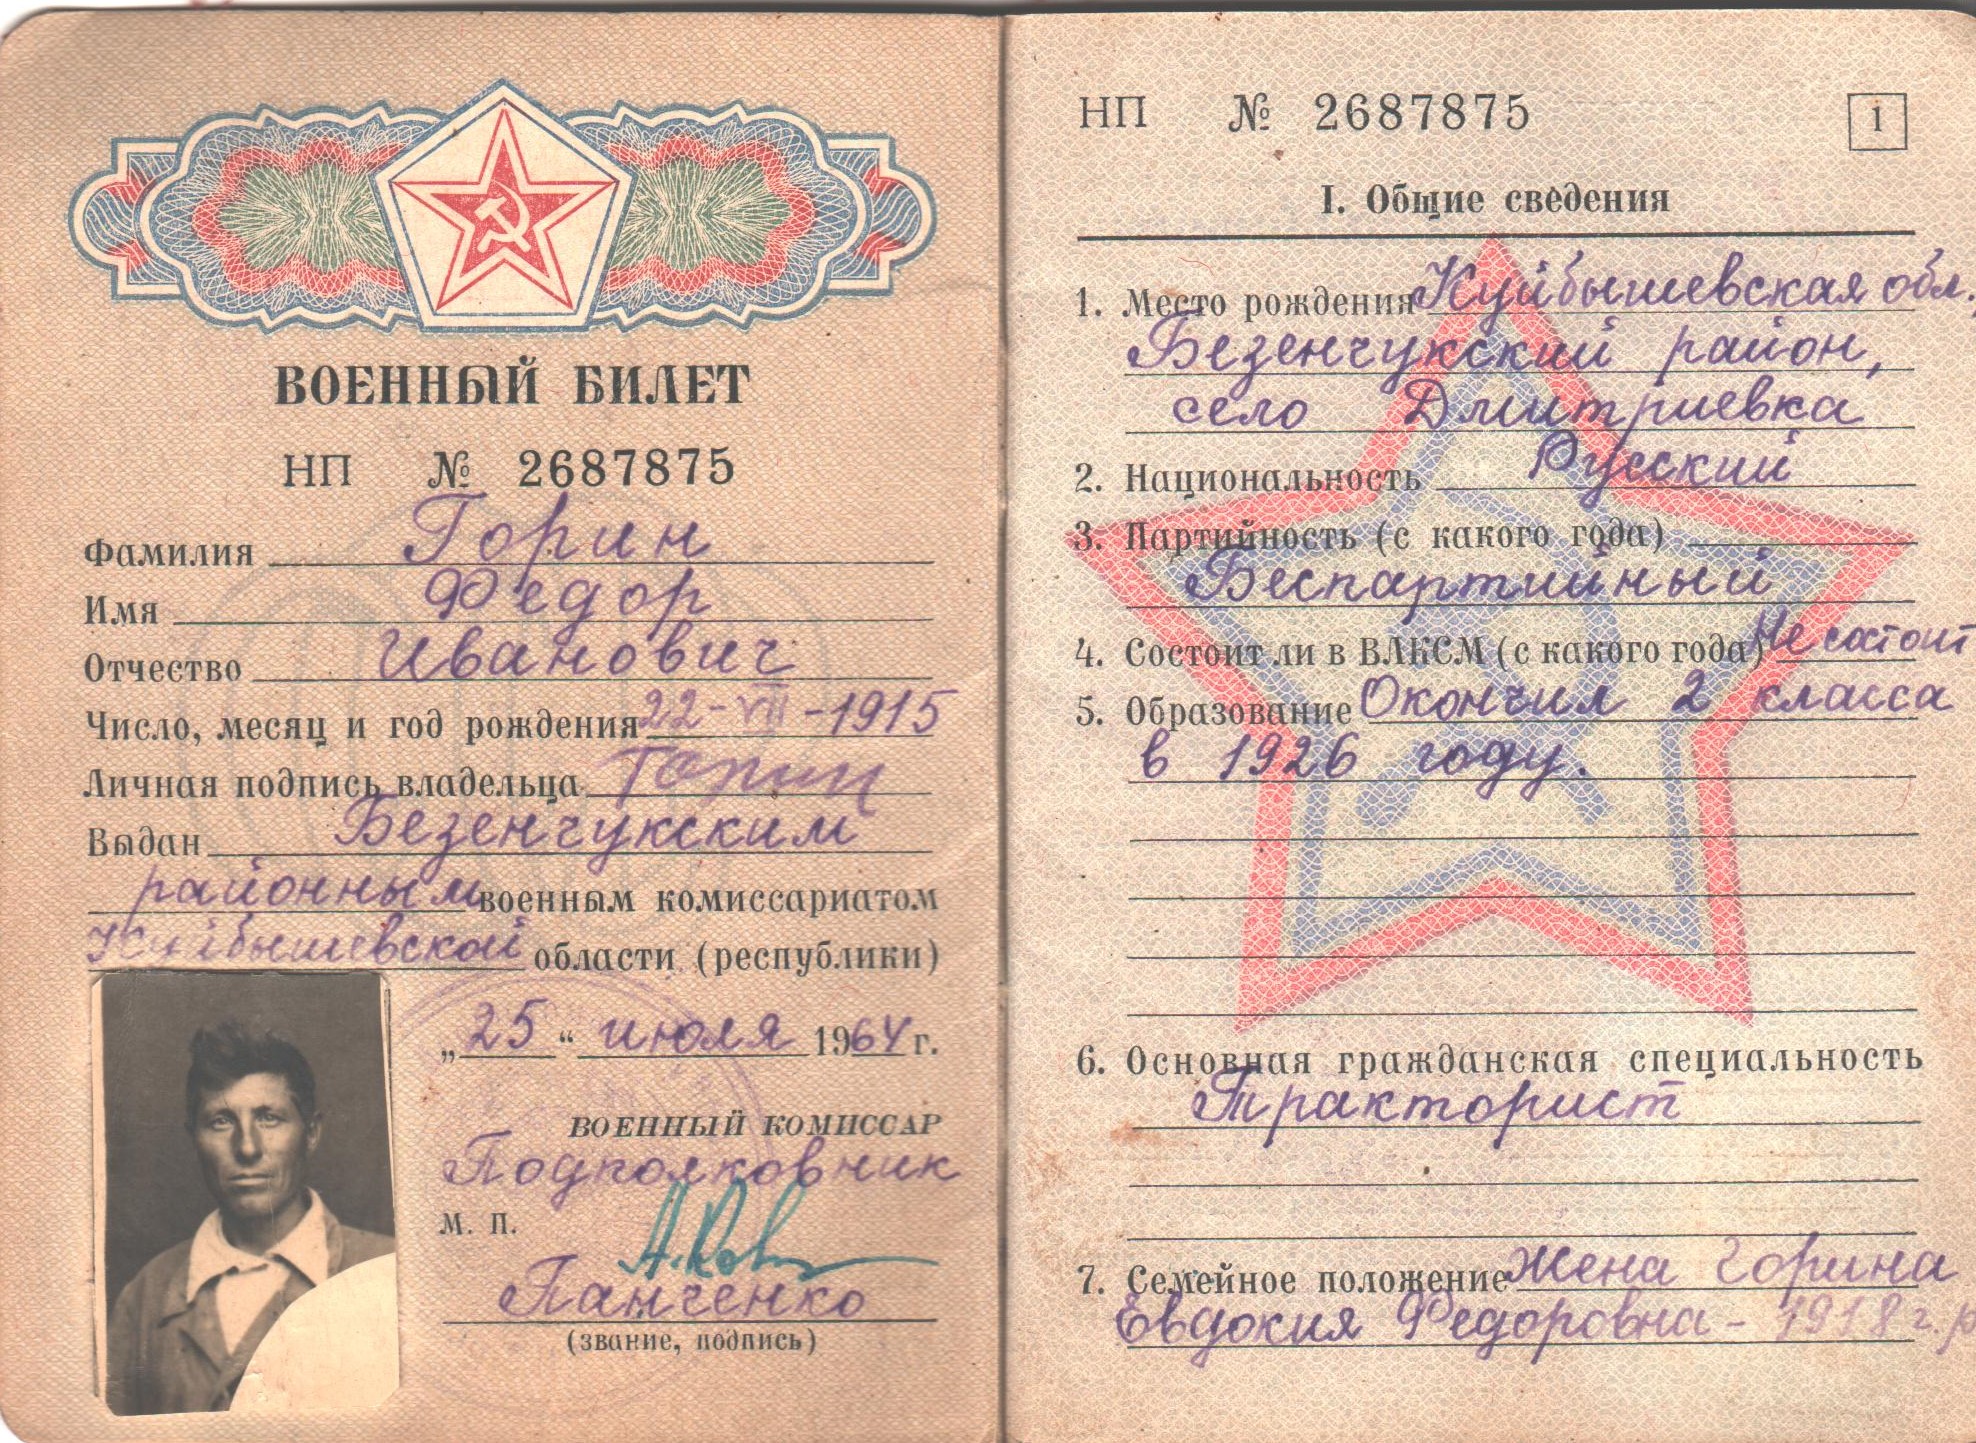 ВОЕННЫЙ БИЛЕТ
НП № 2687875
Фамилия Горин
Имя Федор
Отчество Иванович
Число, месяц и год рождения 22-VII-1915
Личная подпись владельца Горин
Выдан Безенчукским
районным военным комиссариатом
Куйбышевской области (республики)
„25“ июля 1964 г.
ВОЕННЫЙ КОМИССАР
Подполковник
М. П.
Панченко
(звание, подпись)
НП № 2687875
1
I. Общие сведения
1. Место рождения Куйбышевская обл.,
Безенчукский район,
село Дмитриевка
2. Национальность Русский
3. Партийность (с какого года)
Беспартийный
4. Состоит ли в ВЛКСМ (с какого года) Не состоит
5. Образование Окончил 2 класса
в 1926 году.
6. Основная гражданская специальность
Тракторист
7. Семейное положение Жена Горина
Евдокия Федоровна - 1918 г. р